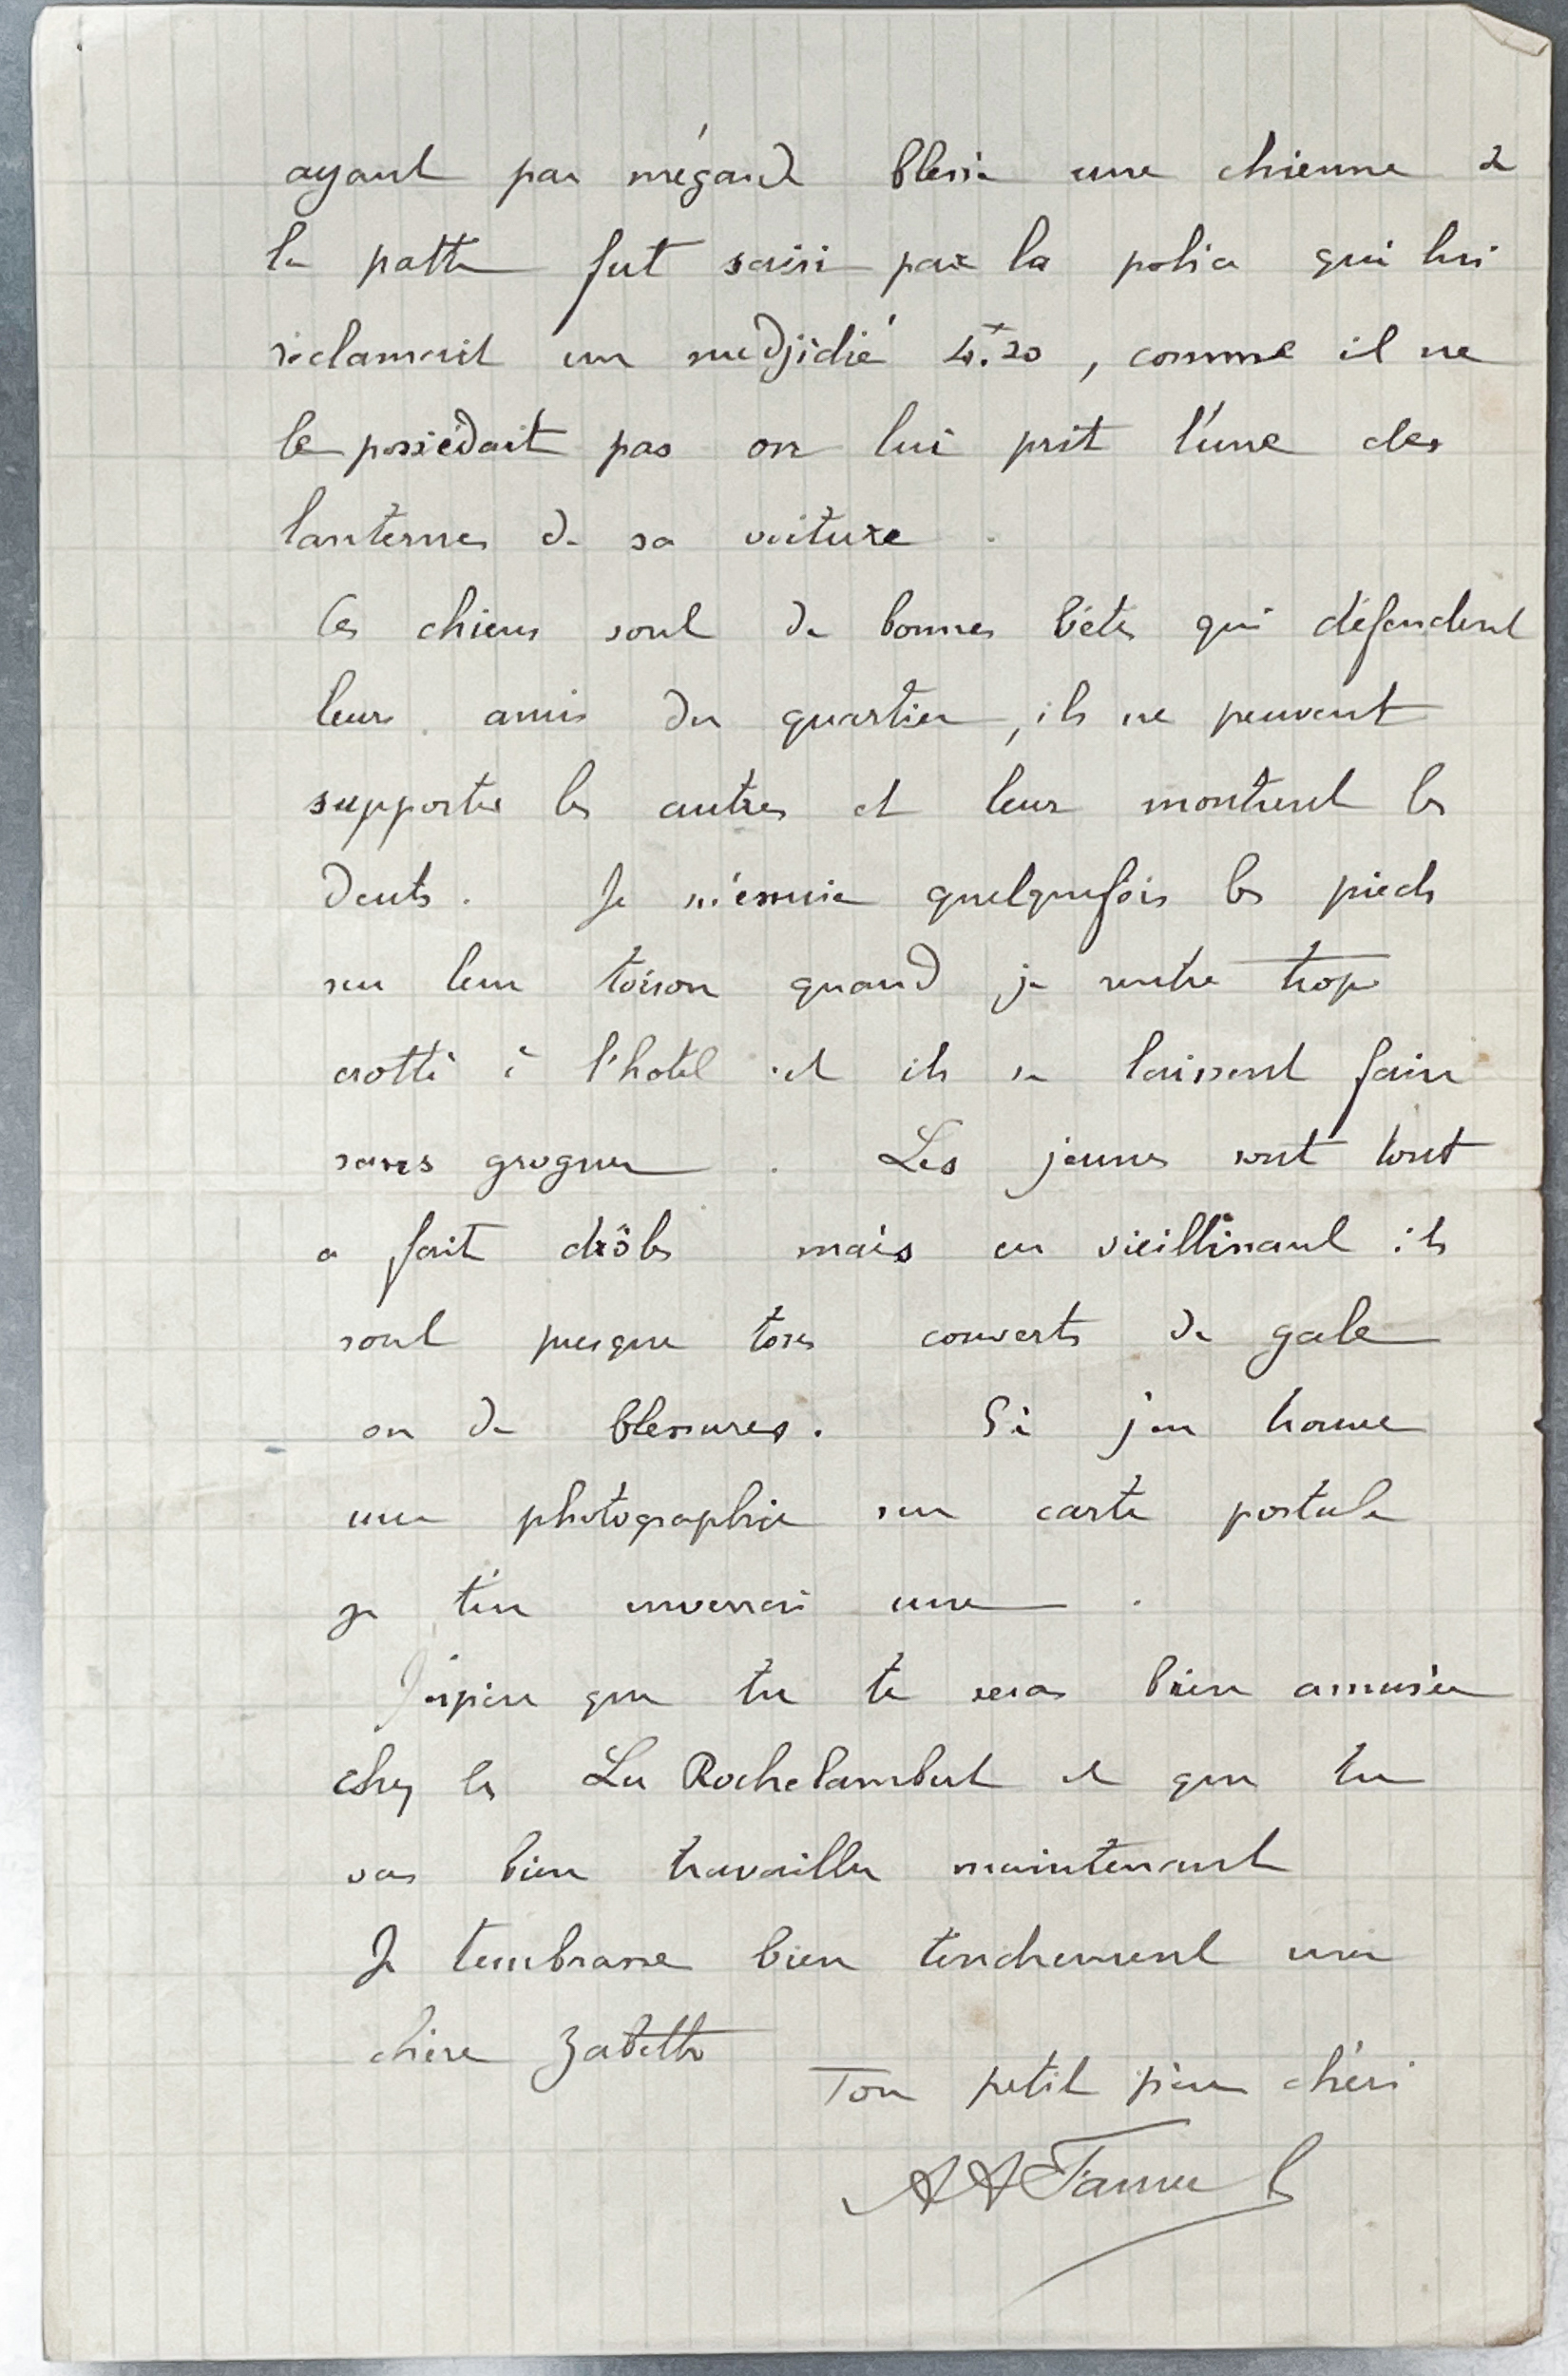 ayant par mégarde blessé une chienne à
la patte fut saisi par la police qui lui
réclamait un medjidié 4.20, comme il ne
le possédait pas on lui prit l'une des
lanternes de sa voiture.
Ces chiens sont de bonnes bêtes qui défendent
leurs amis du quartier, ils ne peuvent
supporter les autres et leur montrent les
dents. Je m'essuie quelquefois les pieds
sur leur toison quand je rentre trop
crotté à l'hotel et ils se laissent faire
sans grogner. Les jeunes sont tout
a fait drôles mais en vieillissant ils
sont presque tous couverts de gale
ou de blessures. Si j'en trouve
une photographie sur carte postale
je t'en enverrai une.
J'espère que tu te seras bien amusée
chez les La Rochelambert et que tu
vas bien travailler maintenant
Je tembrasse bien tendrement ma
chère Zabeth
Ton petit père chéri